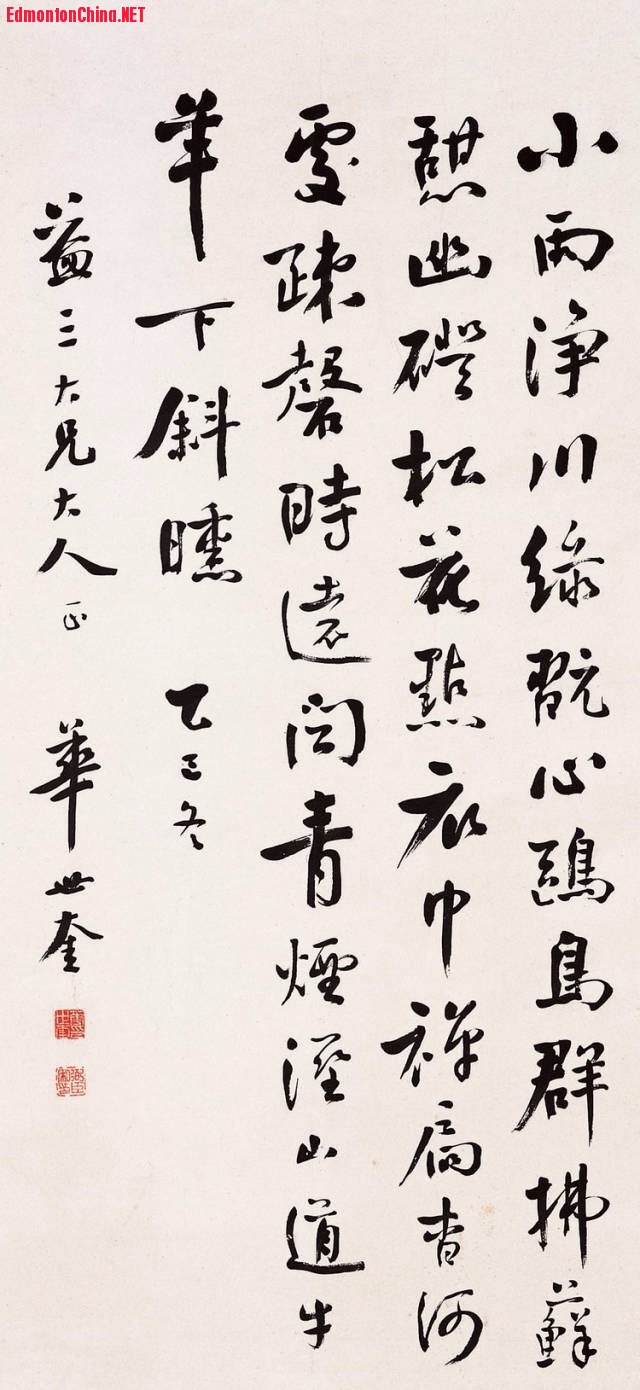 EdmontonChina.NET
小雨淨川綠翫心鷗鳥群拂蘚
憩幽磴松花點衣巾禪扃杳何
處疎磬時遠聞青煙溼山道牛
羊下斜曛 乙冬
益三大兄大人正 華世奎